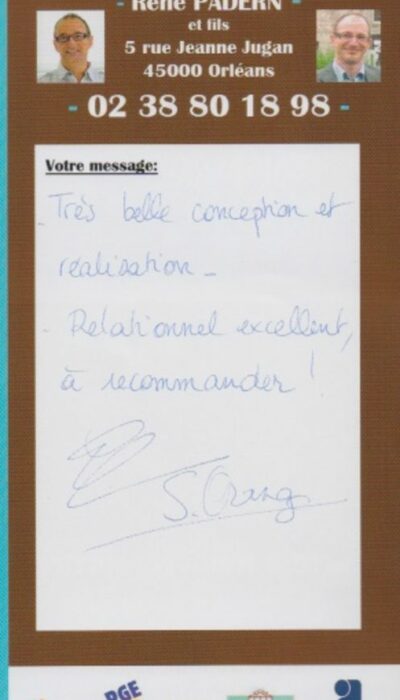 - René PADERN -
et fils
5 rue Jeanne Jugan
45000 Orléans
- 02 38 80 18 98 -
Votre message:
- Très belle conception et
réalisation -
- Relationnel excellent,
à recommander !
RGE